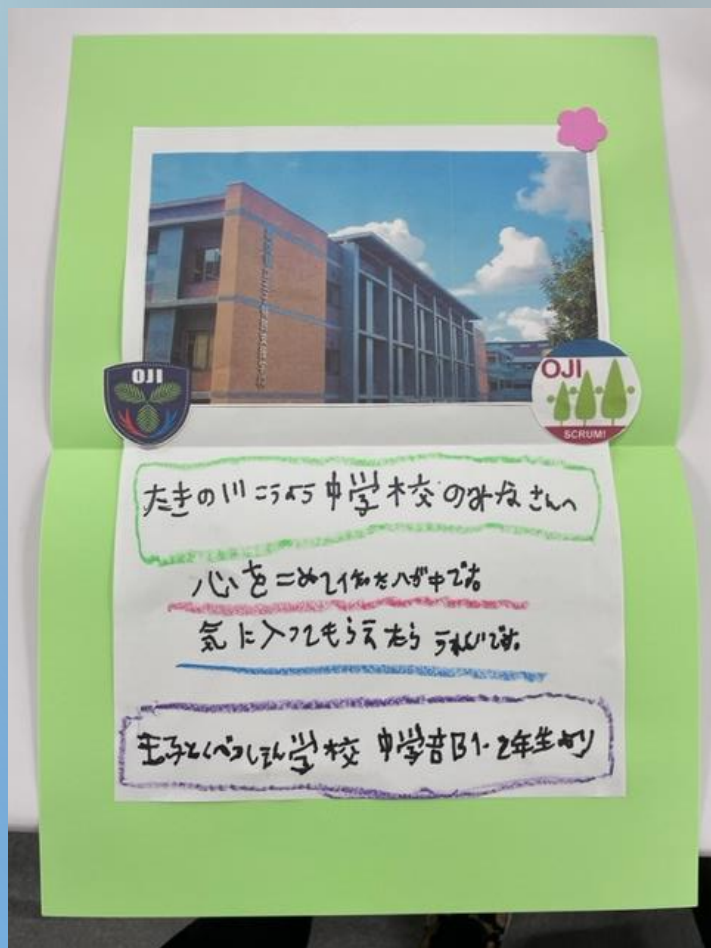 OJI
OJI
SCRUM!
たきの川こうよう中学校のみなさんへ
心をこめて作ったハガキです
気に入ってもらえたらうれしいです。
王子とくべつしえん学校 中学部1・2年生より